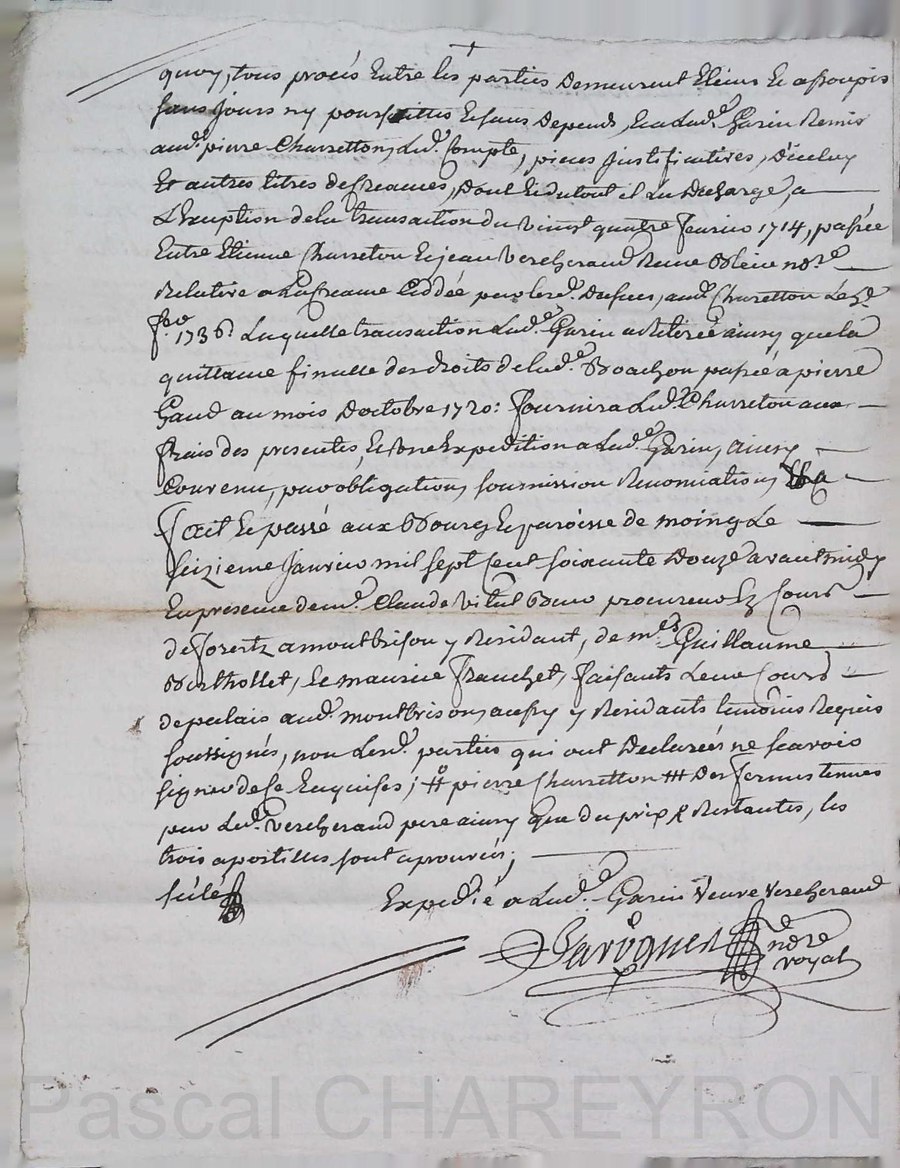 quoy, tous procés Entre les parties Demeurent Eteins Et assoupis
sans jours ny poursuittes Et sans Depends, Et a Lad.e Garin Remis
aud. pierre Charretton, Led.t Compte, pieces justificatives, D'iceluy
Et autres titres de Creances, Dont Et du tout il L'a Dechargé, a
L'Exeption de la transaction du vingt quatre fevrier 1714, passée
Entre Etienne Charreton Et jean Vercherand Reçue n.re
Relative a La Creance Ceddée par led. aud. Charetton Le
1736. Laquelle transaction Lad.e Garin a Retirée ainsy que la
quittance finalle des droits de lad.e Boachon passée a pierre
Gaud au mois D'octobre 1720: fournira Led. Charreton aux
frais des presentes, Et d'une Expedition a Lad.e Garin, ainsy
Convenu, par obligations soumission Renonciations
fait Et passé aux Bourg Et paroisse de moing Le
seizieme janvier mil sept Cent soixante Douze avant midy
En presence de m.e Claude Vital procureur Ez Cours
de forertz a montbrison y Residant, de m.es Guillaume
Berthollet, Et maurice franchet, faisants Leur Cours
de palais aud. montbrison, aussy y Residants temoins Requis
soussignés, non Lesd. parties qui ont Declarées ne sçavoir
signer de ce Enquises; # pierre Charretton ## Des fermes tenues
par Led. Vercherand pere ainsy que du prix Restantes, les
trois apostilles sont aprouvées;
Expedié a Lad.e Garin Veuve Vercherand
n.re
royal
Pascal CHAREYRON